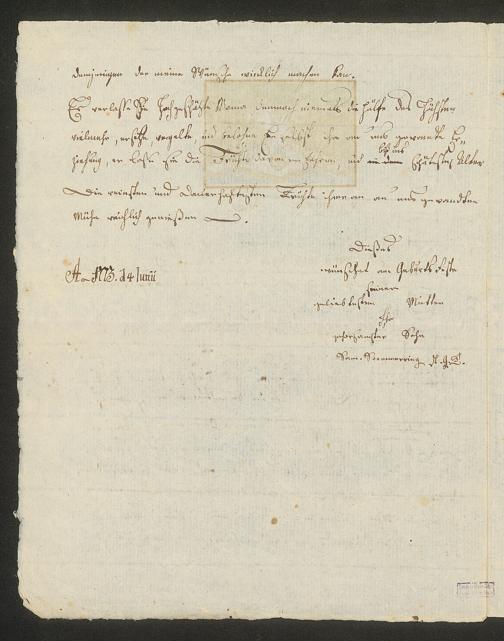 demjenigen der meine Wünsche wirklich machen kan.
Er verlasse Sie Hochgeschätzte Mama demnach niemals die Hülfe des Höchsten
vielmehr, ersetze, vergelte, und belohne Er selbst ihre an uns gewandte Er=
ziehung, er lasse sie die Früchte davon erfahren, und bis ins späteste Alter
Die reinsten und dauerhaftesten Früchte ihrer an uns gewandten
Mühe reichlich genießen
Dießes
wünschet am Geburts Feste
seiner
geliebtesten Mutter
Ihr
gehorsamster Sohn
Sam. Soemmerring
d 4 Junii